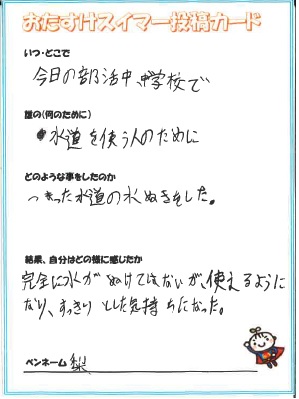 おたすけスイマー投稿カード
いつ・どこで
今日の部活中、中学校で
誰の(何のために)
水道を使う人のために
どのような事をしたのか
つまった水道の水ぬきをした。
結果、自分はどの様に感じたか
完全に水がぬけてはないが、使えるように
なり、すっきりとした気持ちになった。
ペンネーム 梨